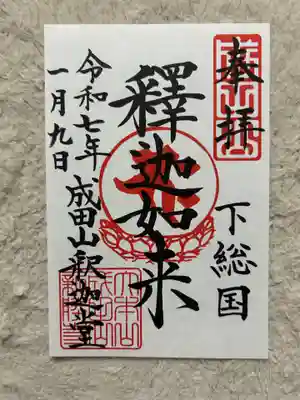 奉拝
下総国
釋迦如来
成田山釈迦堂
令和七年
一月九日